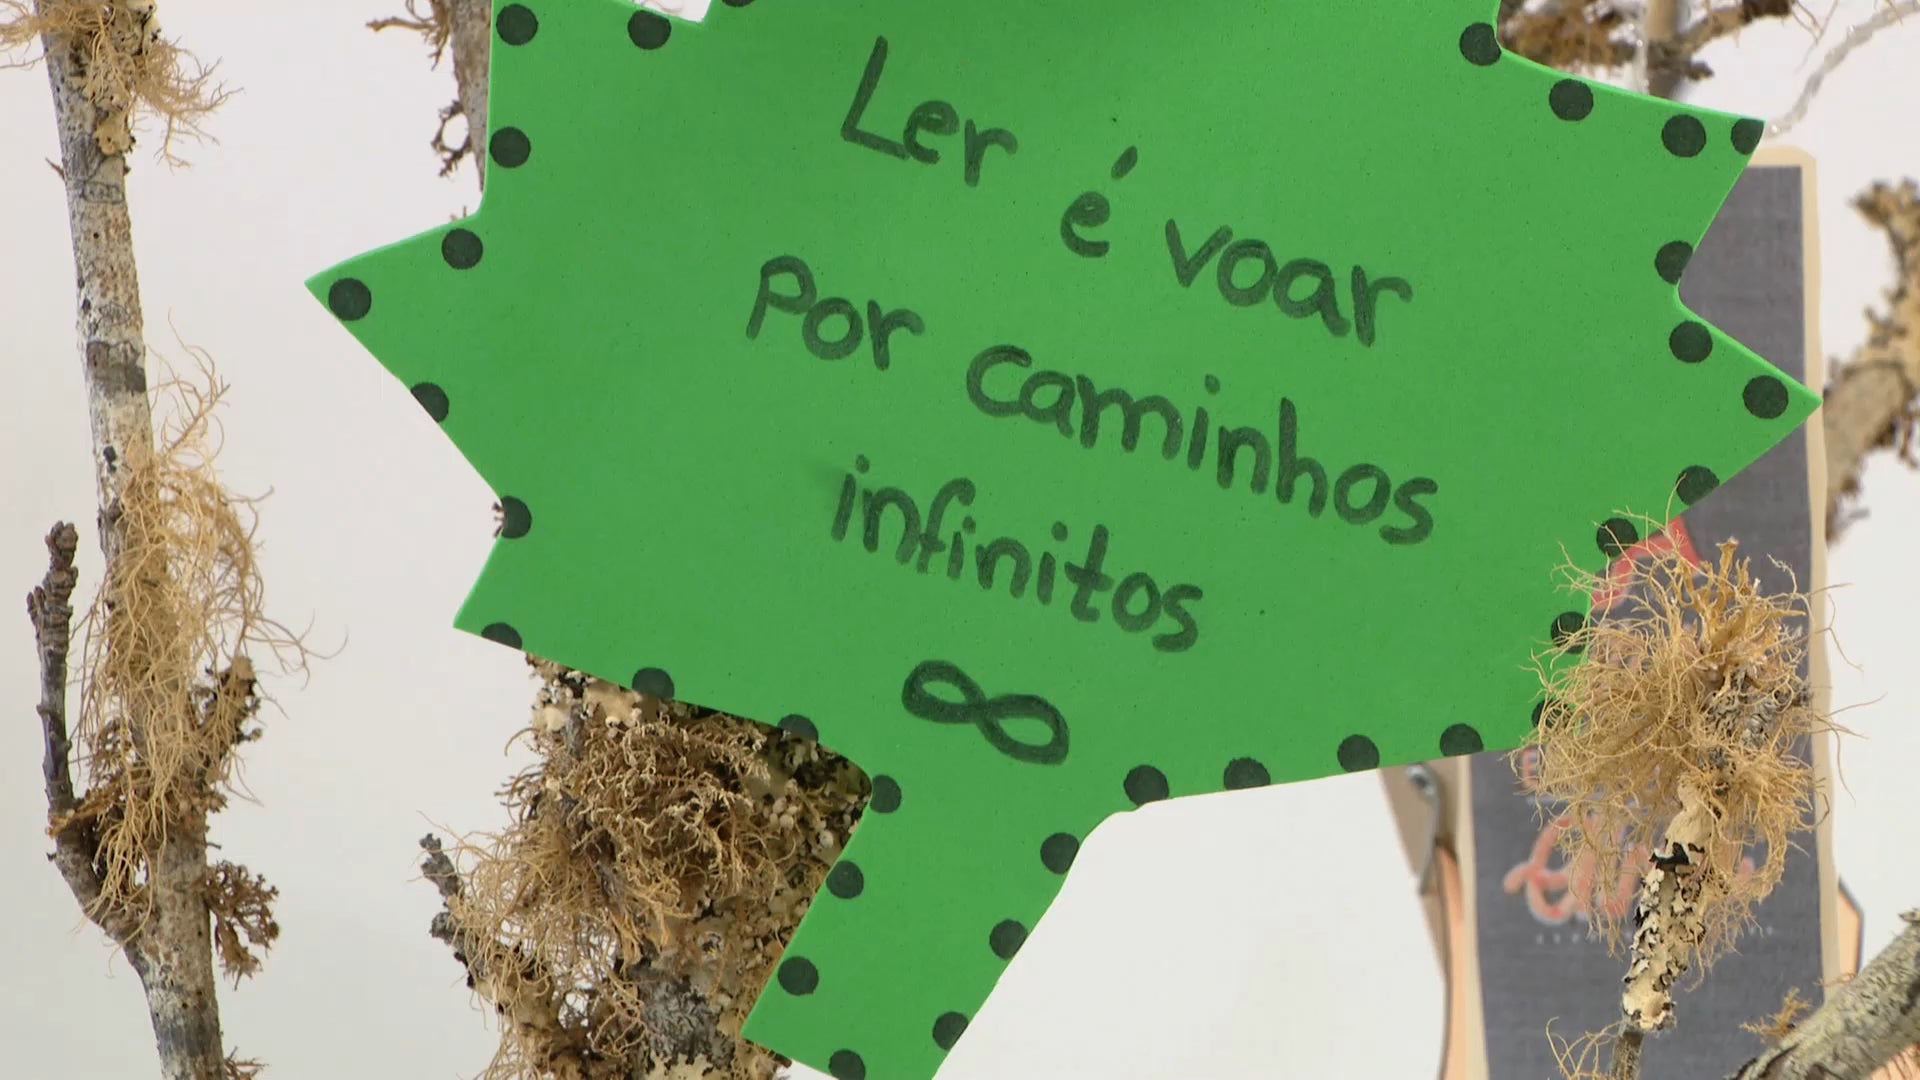 Ler é voar
Por caminhos
infinitos
∞